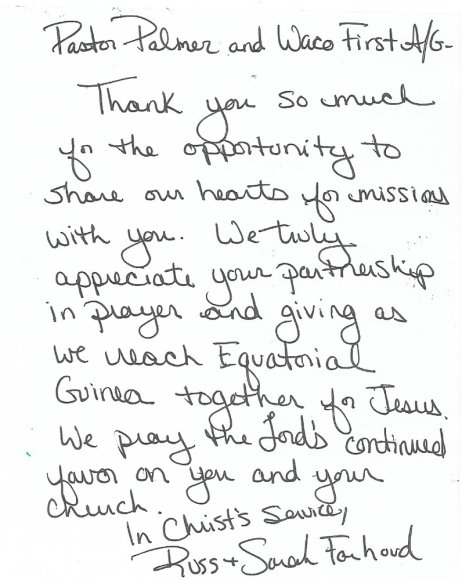 Pastor Palmer and Waco First A/G-
Thank you so much
for the opportunity to
share our hearts for missions
with you. We truly
appreciate your partnership
in prayer and giving as
we reach Equatorial
Guinea together for Jesus.
We pray the Lord's continued
favor on you and your
church.
In Christ's Service,
Russ + Sarah Farhoud